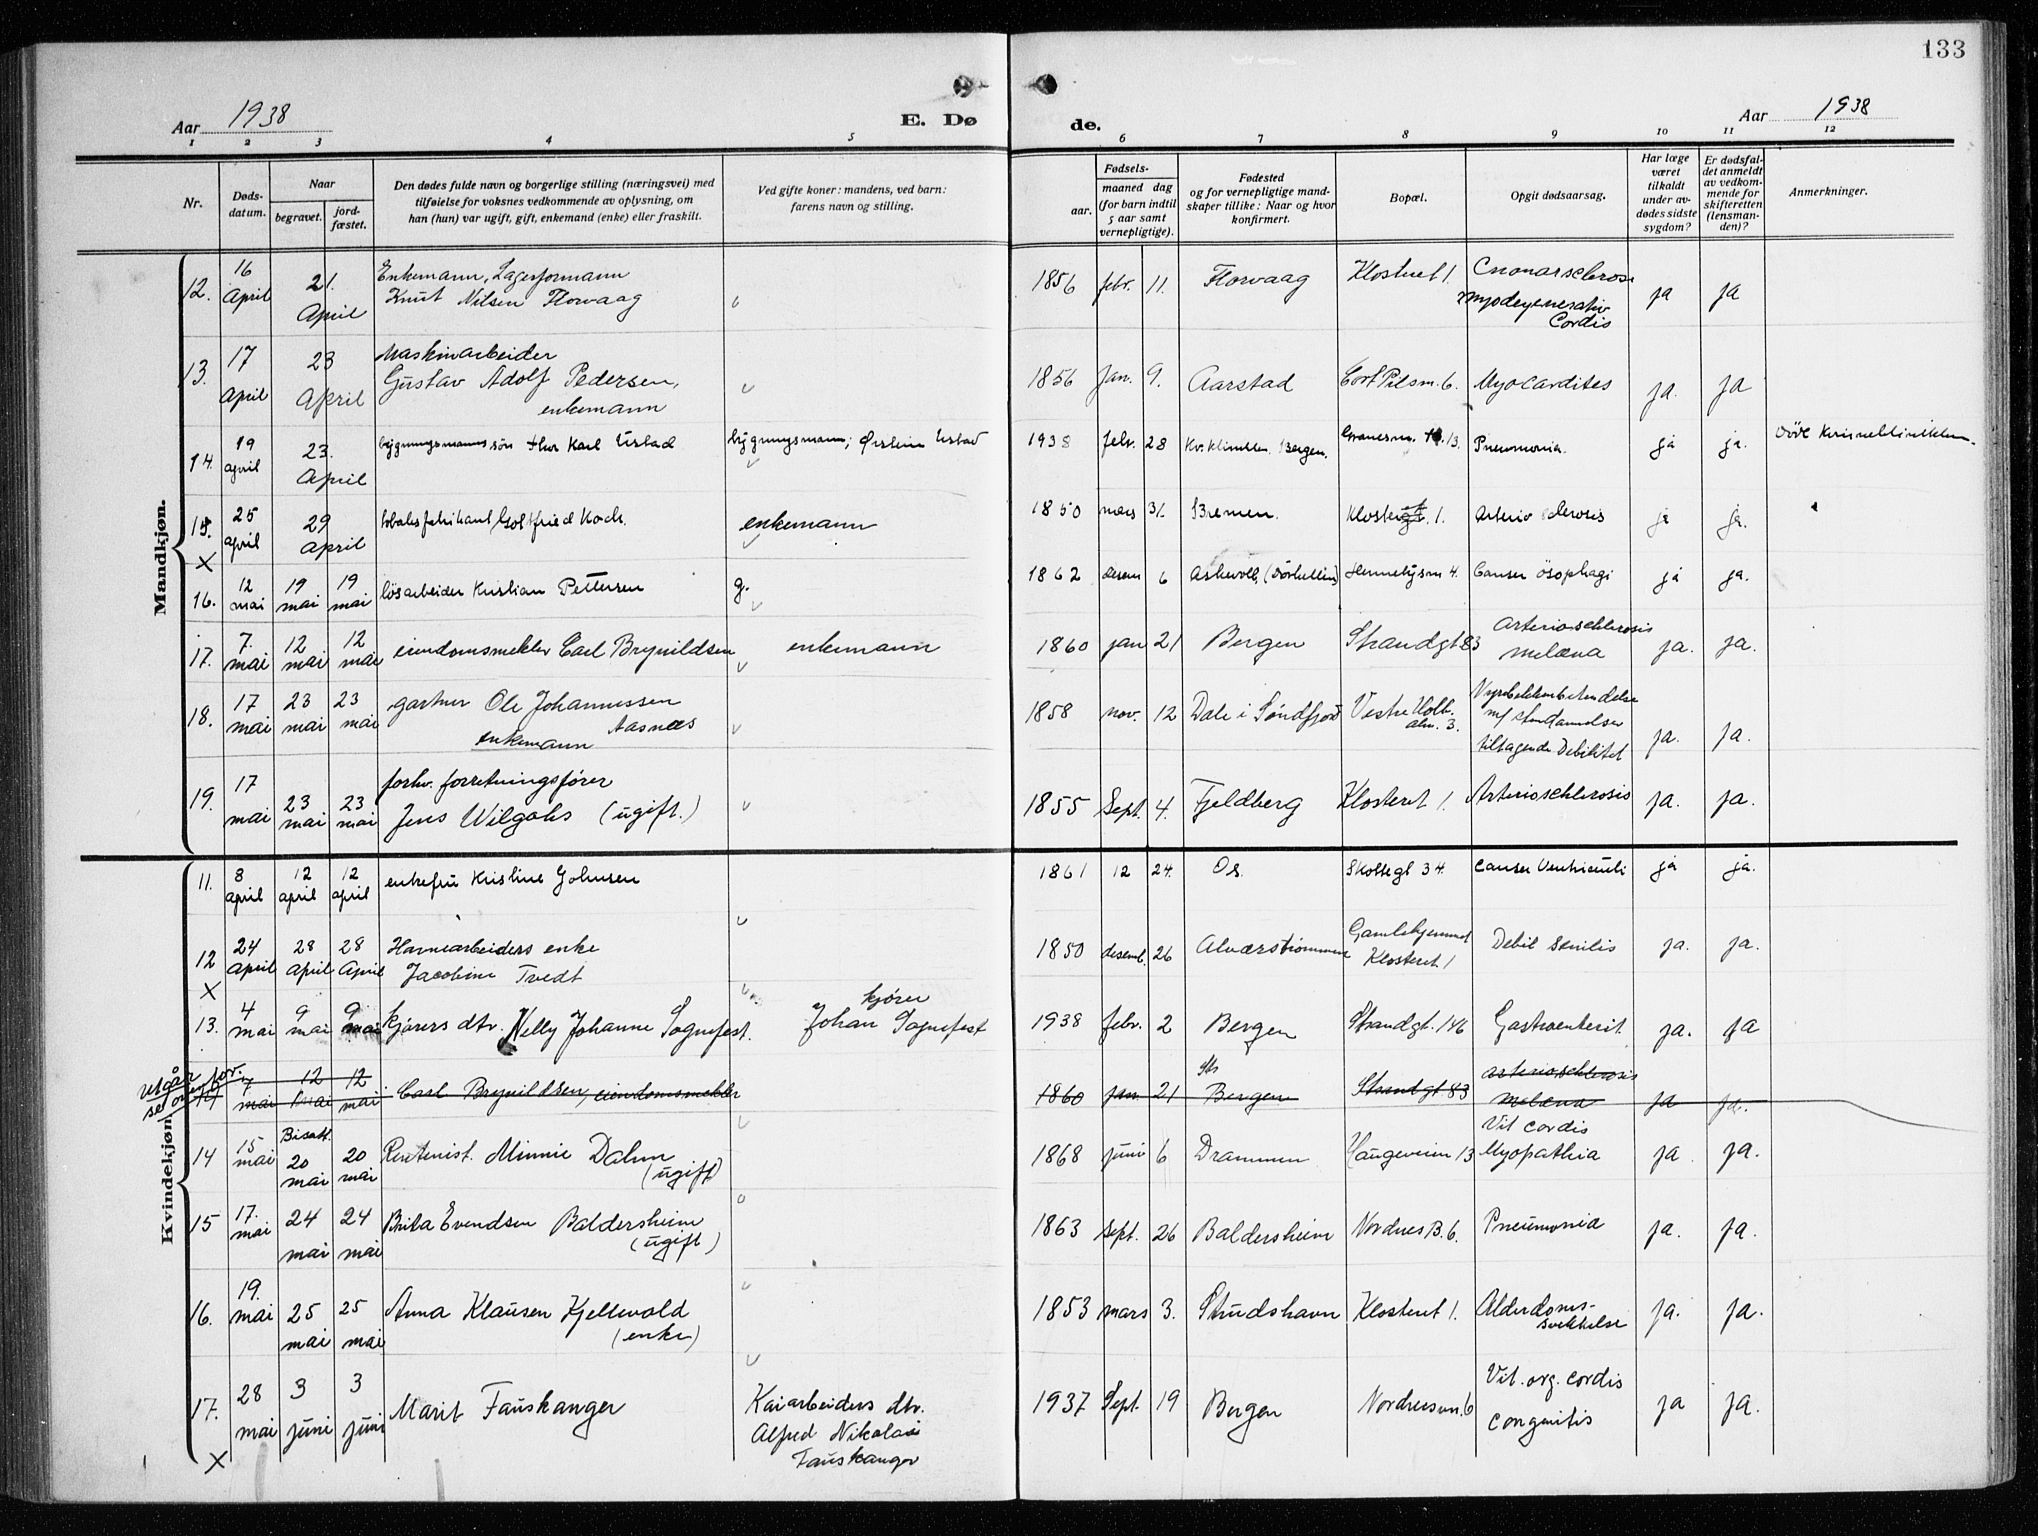 133
Aar 1938
E. Dø
de.
Aar 1938
1 2 3 4 5 6 7 8 9 10 11 12
Nr.
Døds-
datum.
Naar
begravet.
jord-
fæstet.
Den dødes fulde navn og borgerlige stilling (næringsvei) med
tilføielse for voksnes vedkommende av oplysning, om
han (hun) var ugift, gift, enkemand (enke) eller fraskilt.
Ved gifte koner: mandens, ved barn:
farens navn og stilling.
Fødsels-
aar.
maaned dag
(for barn indtil
5 aar samt
vernepligtige).
Fødested
og for vernepligtige mand-
skaper tillike: Naar og hvor
konfirmert.
Bopæl.
Opgit dødsaarsag.
Har læge
været
tilkaldt
under av-
dødes sidste
sygdom?
Er dødsfal-
det anmeldt
av vedkom-
mende for
skifteretten
(lensman-
den)?
Anmerkninger.
Mandkjøn.
12. 16 April 21. April Enkemann, Lagerformann
Knut Nilsen Florvaag
1856 febr. 11. Florvaag Klosteret 1. Cordis ja ja
13. 17 April 23 April Maskinarbeider
Gustav Adolf Pedersen,
enkemann
1856 Jan. 9. Aarstad Cort Pilsm. 6. Myocardites ja. ja
14. 19 april 23. April bygningsmanns søn Karl Urstad bygningsmann; Urstad
1938 febr. 28 Kv. klinikken Bergen. 13. Pneumonia. ja ja. Död Kvinneklinikken.
15. 25 april 29 April Gottfried Koch. enkemann
1850 mars 31. Bremen. 1. Arterio sclerosis ja ja.
X
16. 12 mai 19 mai 19 mai løsarbeider Kristian Pettersen g.
1862 desem 6 4. Canser ösophagi ja ja.
17. 7. mai 12 mai 12 mai eiendomsmekler Carl Brynildsen enkemann
1860 jan 21 Bergen Strandgt 83 Arterioschlerosis
melæna ja. ja.
18. 17 mai 23 mai 23 mai gartner Ole Johannessen
Aasnæs
enkemann
1858 nov. 12 Dale i Søndfjord Vestre Holb.
alm. 3.
tiltagende Debilitet ja. ja.
19. 17 mai 23 mai 23 mai forhv. forretningsfører
Jens Wilgohs (ugift.)
1855 Sept. 4. Fjeldberg Klosteret 1. Arterioschlerosis ja. ja.
Kvindekjøn.
11. 8 april 12 april 12 april enkefru Kristine Johnsen
1861 12 24. Os. Skottegt 34. Canser Ventriculi ja ja.
12 24 april 28 April 28 April Havnearbeiders enke
Jacobine Tvedt
1850 desemb. 26 Alværstrømmen Gamlehjemmet
Klosteret 1 Debil senilis ja. ja.
X
13. 4 mai 9 mai 9 mai kjørers dtr. Nelly Johanne Sognefest. kjører
Johan Sognefest
1938 febr. 2 Bergen Strandgt. 146 Gastroenterit ja. ja
utgår
se ovenfor.
14 7 mai 12 mai 12 mai Carl Brynildsen, eiendomsmekler
1860 jan. 21 Bergen Strandgt 83 arterioschlerosis
melæna ja ja.
14 15 mai Bisatt. 20 mai 20 mai Rentenist. Minnie Dahm
(ugift)
1868 juni 6 Drammen Haugeveien 13 Vit cordis
Myopathia ja ja.
15 17. mai 24 mai 24 mai Brita Evendsen Baldersheim
(ugift)
1863 sept. 26 Baldersheim Nordnes B. 6. Pneumonia ja. ja.
16. 19. mai 25 mai 25 mai Anna Klausen Kjellevold
(enke)
1853 mars 3. Strudshavn Klosteret 1. Alderdoms-
svekkelse ja. ja.
17. 28 mai 3 juni 3 juni Marit Fauskanger Kaiarbeiders dtr.
Alfred Nikolai
Fauskanger
1937 Sept. 19 Bergen Nordnesvn. 6 Vit. org. cordis
congenitis ja ja.
X